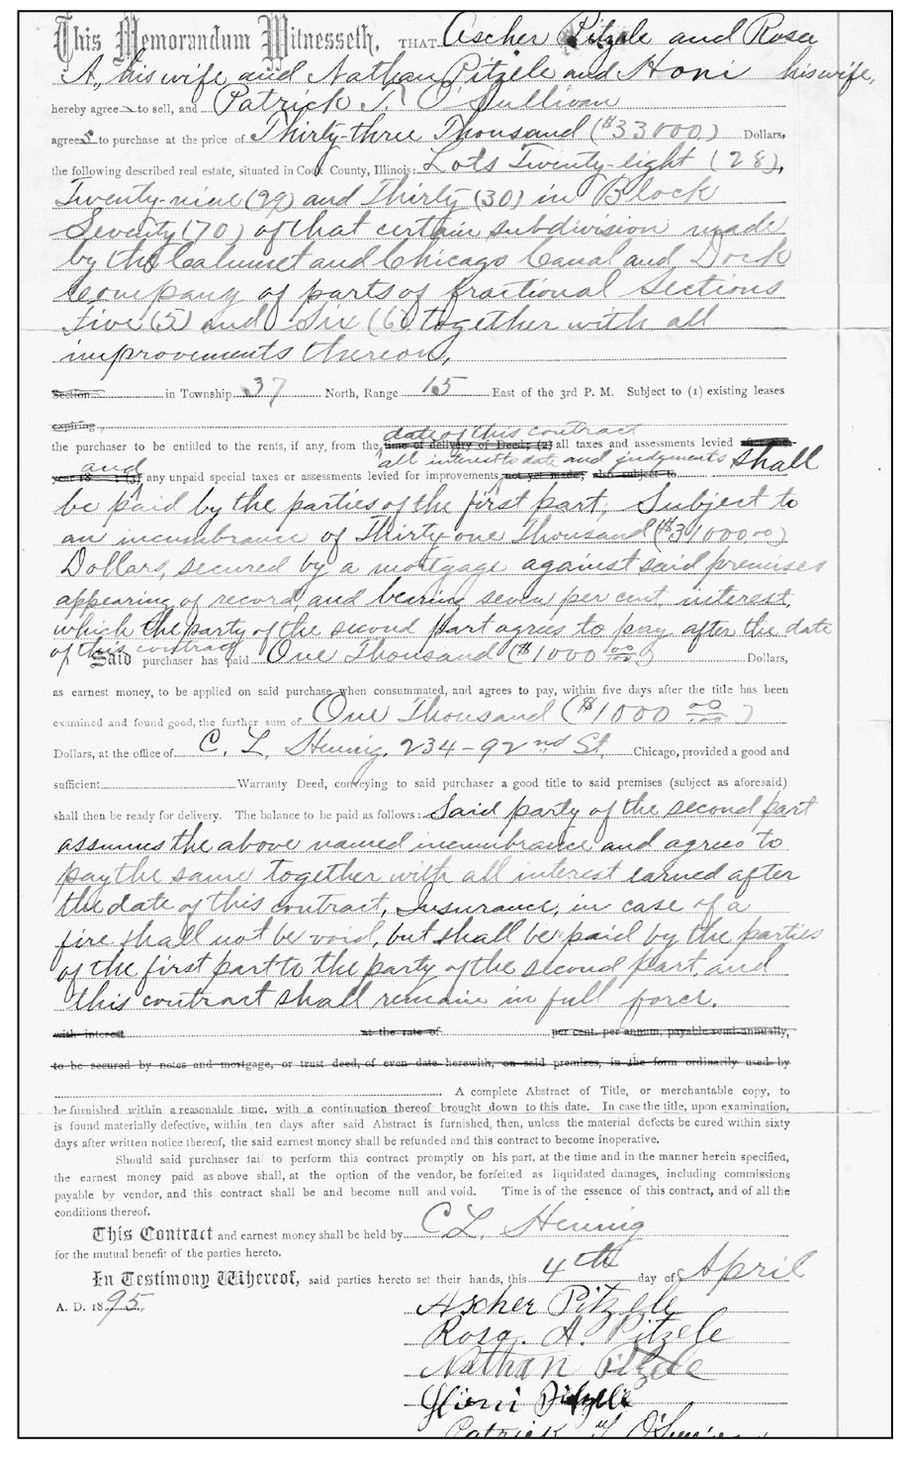 This Memorandum Witnesseth, THAT Ascher Pitzele and Rosa
A, his wife and Nathan Pitzele and Honi his wife,
hereby agree to sell, and Patrick T. O'Sullivan
agrees to purchase at the price of Thirty-three Thousand ($33000) Dollars,
the following described real estate, situated in Cook County, Illinois: Lots Twenty-eight (28),
Twenty-nine (29) and Thirty (30) in Block
Seventy (70) of that certain subdivision made
by the Calumet and Chicago Canal and Dock
Company of parts of fractional Sections
Five (5) and Six (6) together with all
improvements thereon,
Section in Township 37 North, Range 15 East of the 3rd P. M. Subject to (1) existing leases
expiring
date of this contract
the purchaser to be entitled to the rents, if any, from the time of delivery of Deed; (2) all taxes and assessments levied
and all interest to date and judgements shall
year 18 (3) any unpaid special taxes or assessments levied for improvements not yet made; also subject to
be paid by the parties of the first part, Subject to
an incumbrance of Thirty-one Thousand ($31000.00)
Dollars, secured by a mortgage against said premises
appearing of record and bearing seven per cent. interest,
which the party of the second part agrees to pay after the date
of this contract
Said purchaser has paid One Thousand ($1000 00/100) Dollars,
as earnest money, to be applied on said purchase when consummated, and agrees to pay, within five days after the title has been
examined and found good, the further sum of One Thousand ($1000 00/100)
Dollars, at the office of C. L. Hennig, 234-92nd St Chicago, provided a good and
sufficient Warranty Deed, conveying to said purchaser a good title to said premises (subject as aforesaid)
shall then be ready for delivery. The balance to be paid as follows: Said party of the second part
assumes the above named incumbrance and agrees to
pay the same together with all interest earned after
the date of this contract, Insurance, in case of a
fire shall not be void, but shall be paid by the parties
of the first part to the party of the second part and
this contract shall remain in full force.
with interest at the rate of per cent. per annum, payable semi-annually,
to be secured by notes and mortgage, or trust deed, of even date herewith, on said premises, in the form ordinarily used by
A complete Abstract of Title, or merchantable copy, to
be furnished within a reasonable time, with a continuation thereof brought down to this date. In case the title, upon examination,
is found materially defective, within ten days after said Abstract is furnished, then, unless the material defects be cured within sixty
days after written notice thereof, the said earnest money shall be refunded and this contract to become inoperative.
Should said purchaser fail to perform this contract promptly on his part, at the time and in the manner herein specified,
the earnest money paid as above shall, at the option of the vendor, be forfeited as liquidated damages, including commissions
payable by vendor, and this contract shall be and become null and void. Time is of the essence of this contract, and of all the
conditions thereof.
This Contract and earnest money shall be held by C L. Hennig
for the mutual benefit of the parties hereto.
In Testimony Whereof, said parties hereto set their hands, this 4th day of April
A. D. 1895.
Ascher Pitzele
Rosa. A. Pitzele
Nathan Pitzele
Honi Pitzele
Patrick T O'Sullivan